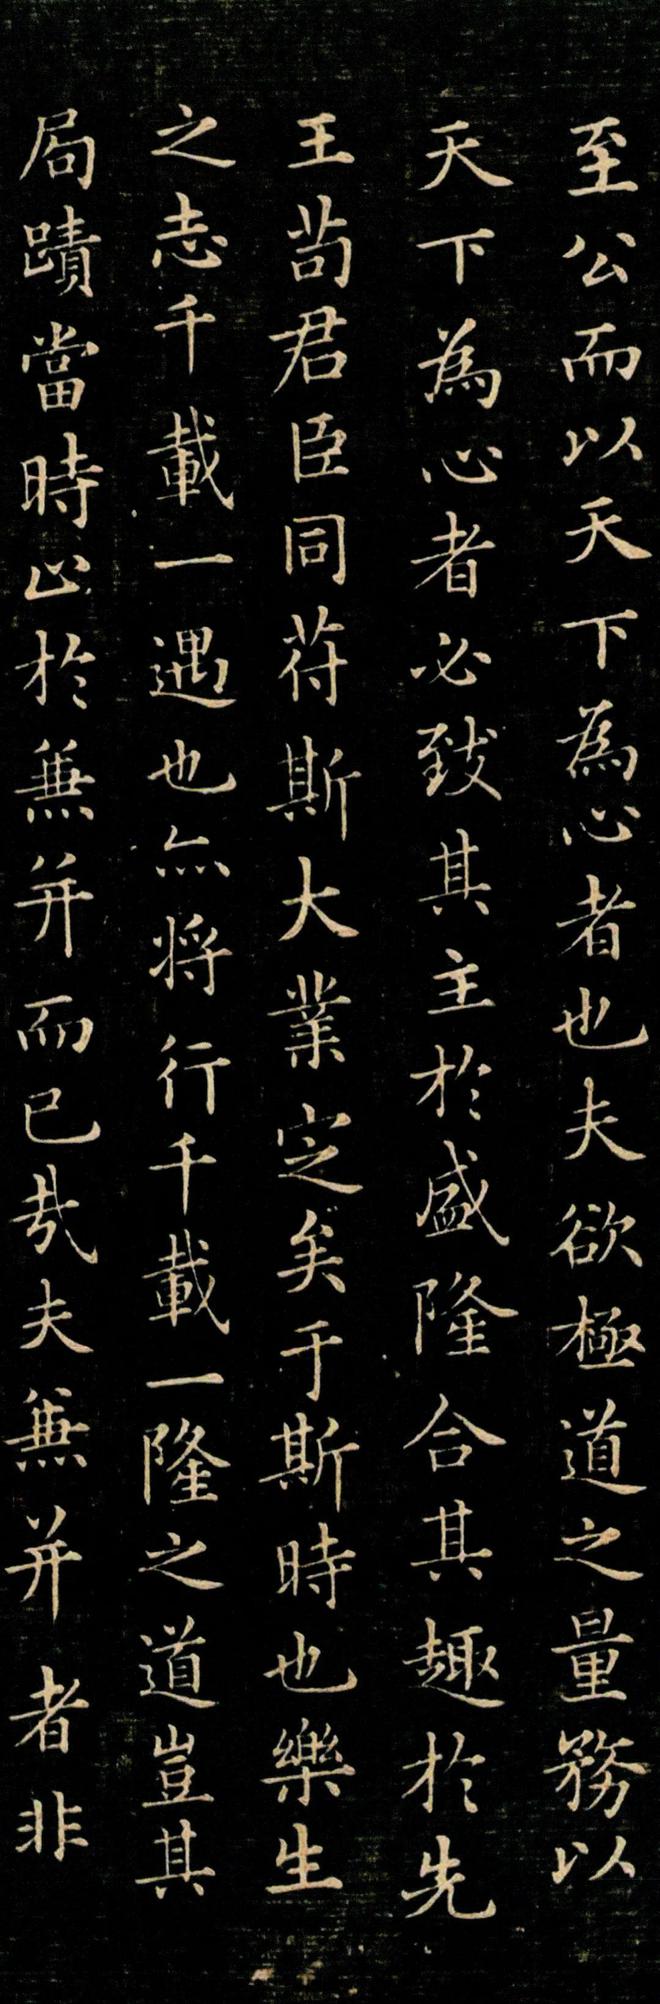 至公而以天下為心者也夫欲極道之量務以
天下為心者必致其主於盛隆合其趣於先
王苟君臣同苻斯大業定矣于斯時也樂生
之志千載一遇也亦將行千載一隆之道豈其
局蹟當時止於兼并而已哉夫兼并者非